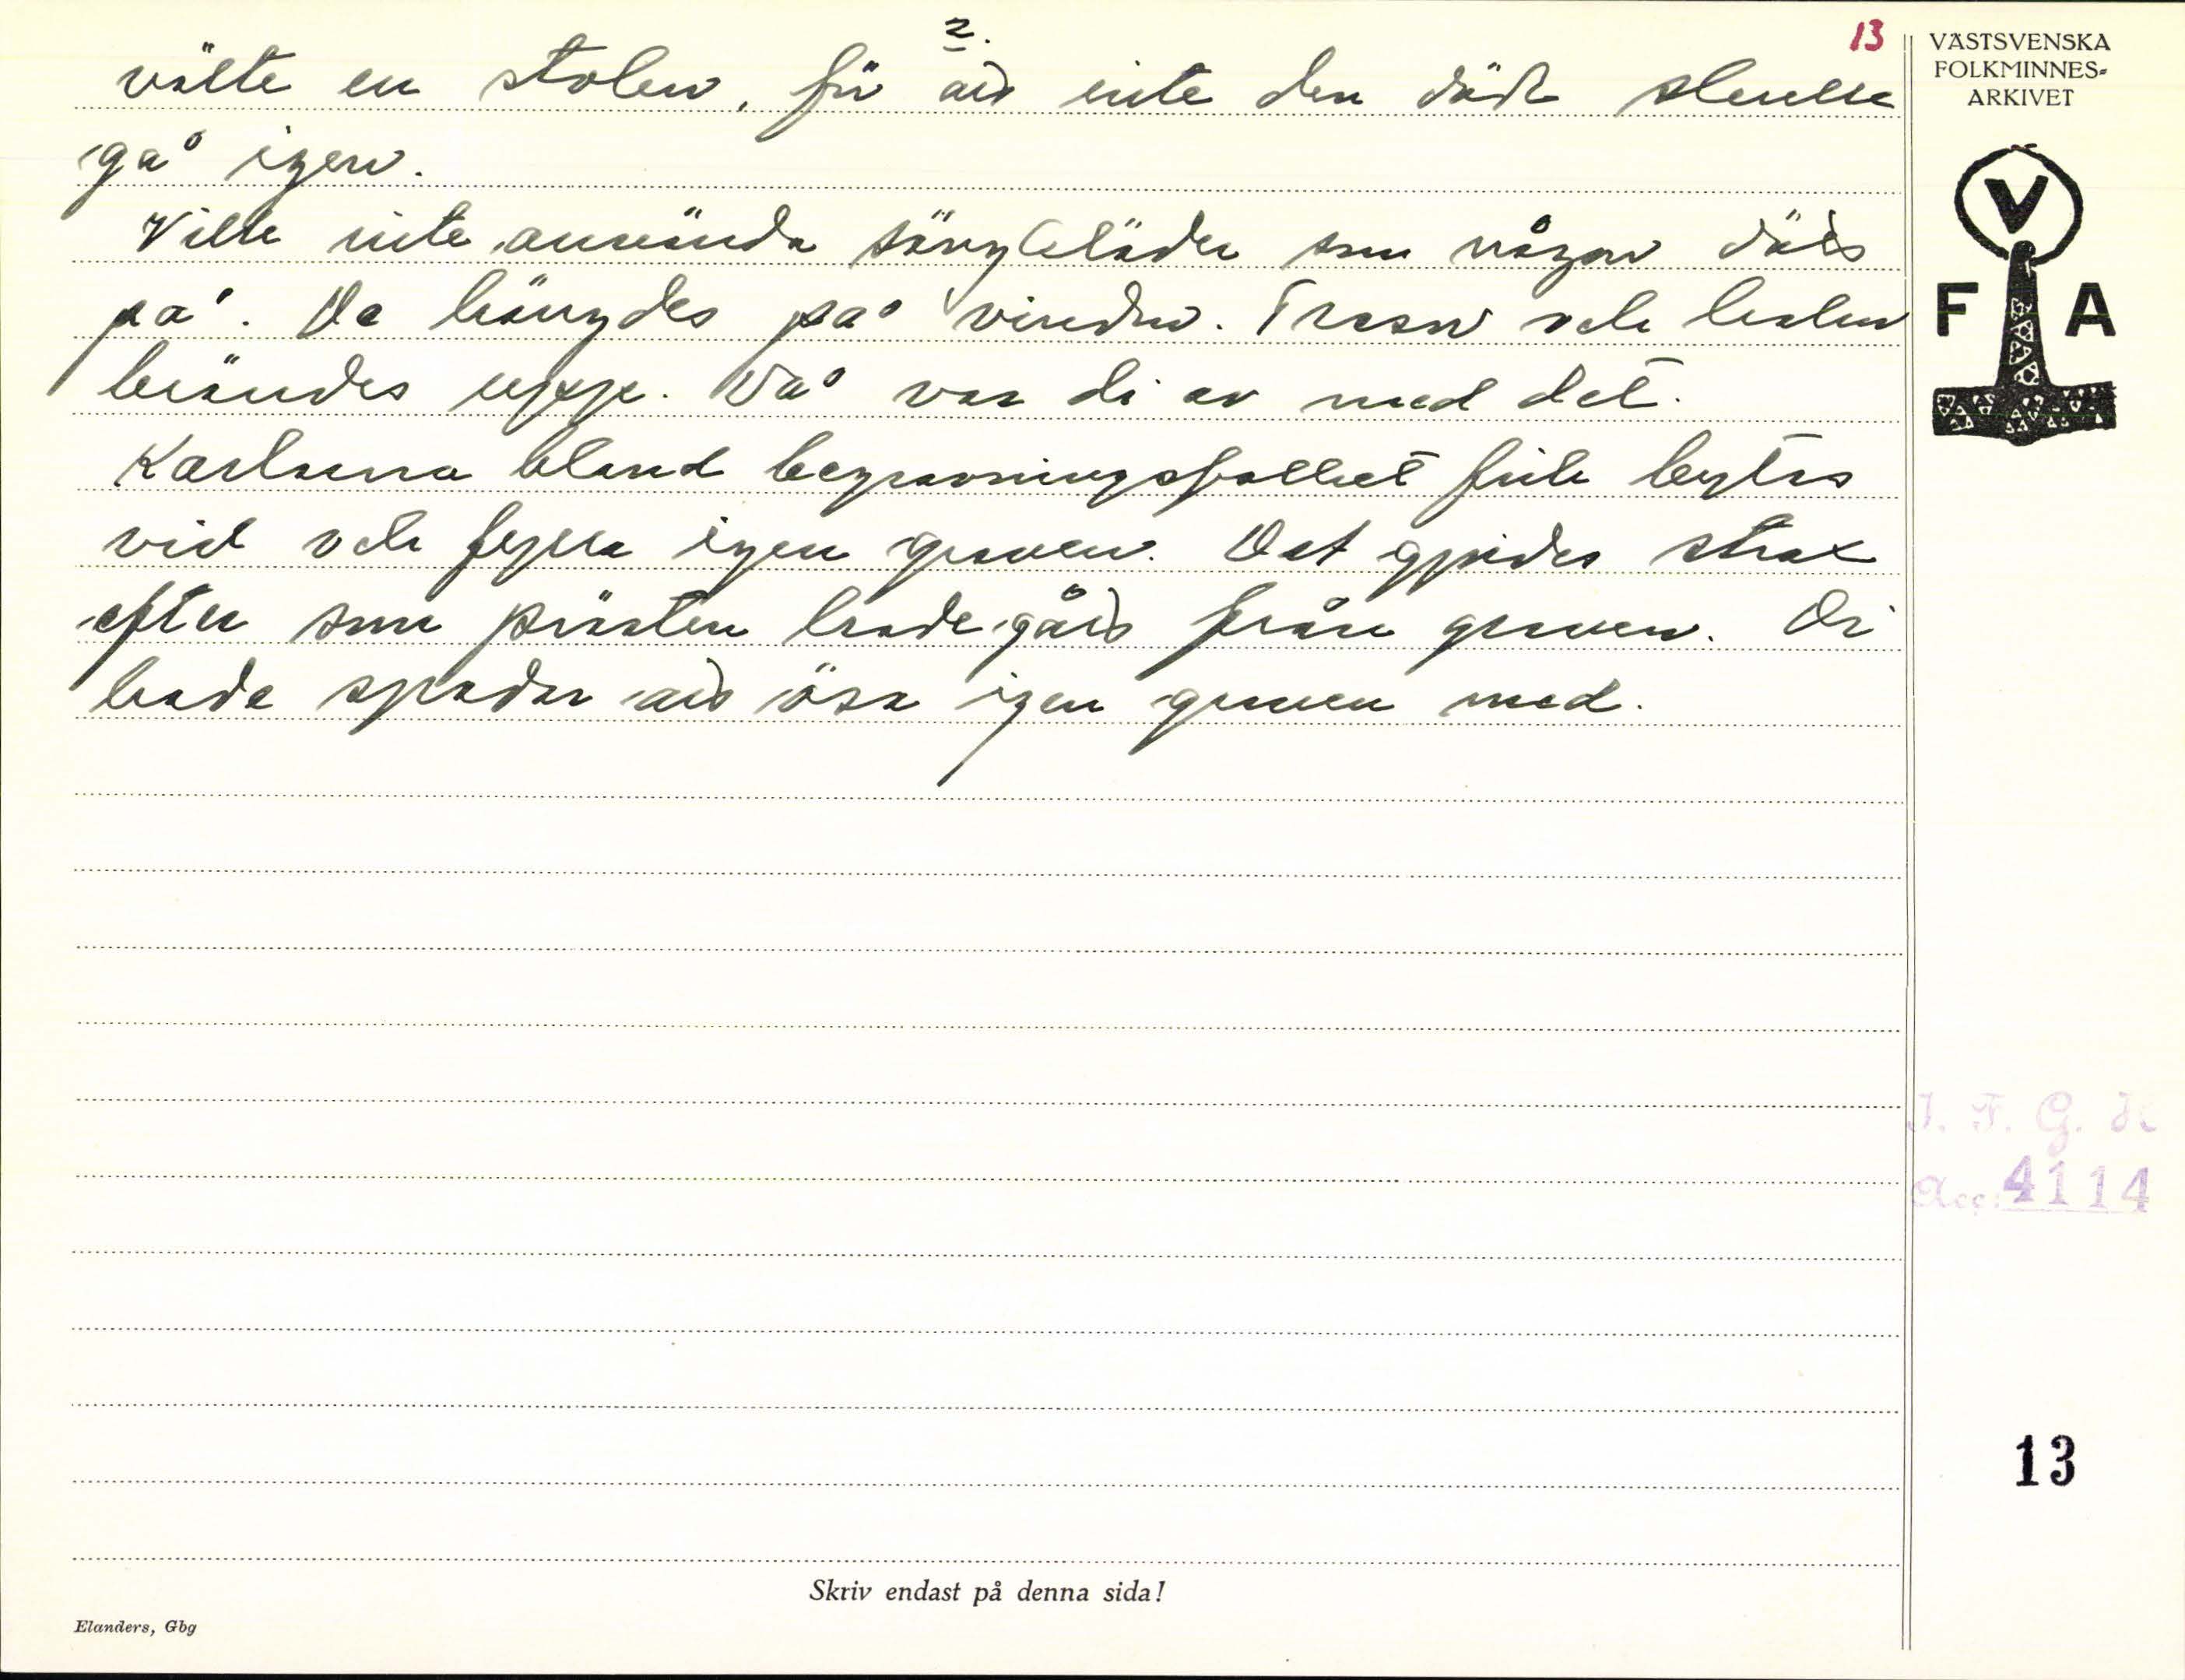 2.
13
välte en stolen, för att inte den döde skulle
gå igen.
Ville inte använda sängkläder som någon dött
på. De hängdes på vinden. Trasor och halm
brändes uppe. Då var di av med det.
Karlarna bland begravningsfolket fick bytas
vid och fylla igen graven. Det gjordes strax
efter som prästen hade gått från graven. Di
hade spadar att ösa igen graven med.
VÄSTSVENSKA
FOLKMINNES-
ARKIVET
V
F A
I. F. G. H
Acc: 4114
13
Skriv endast på denna sida!
Elanders, Gbg